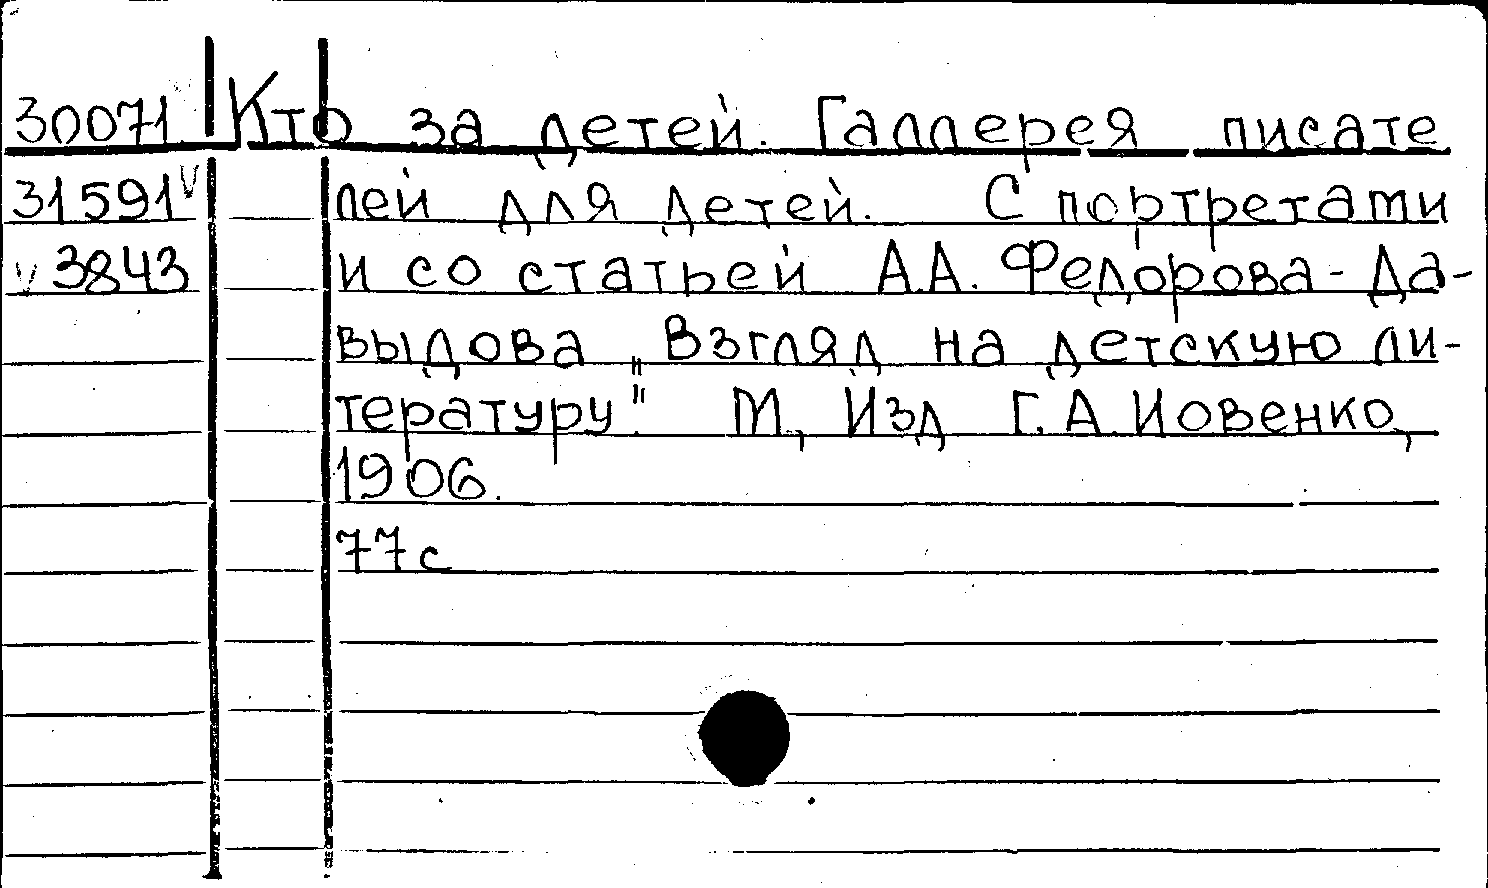 30071 Кто за детей. Галлерея писате
31591 v лей для детей. С портретами
v 3843 и со статьей А.А. Федорова-Да-
выдова „Взгляд на детскую ли-
тературу". М, Изд Г.А. Иовенко,
1906.
77с